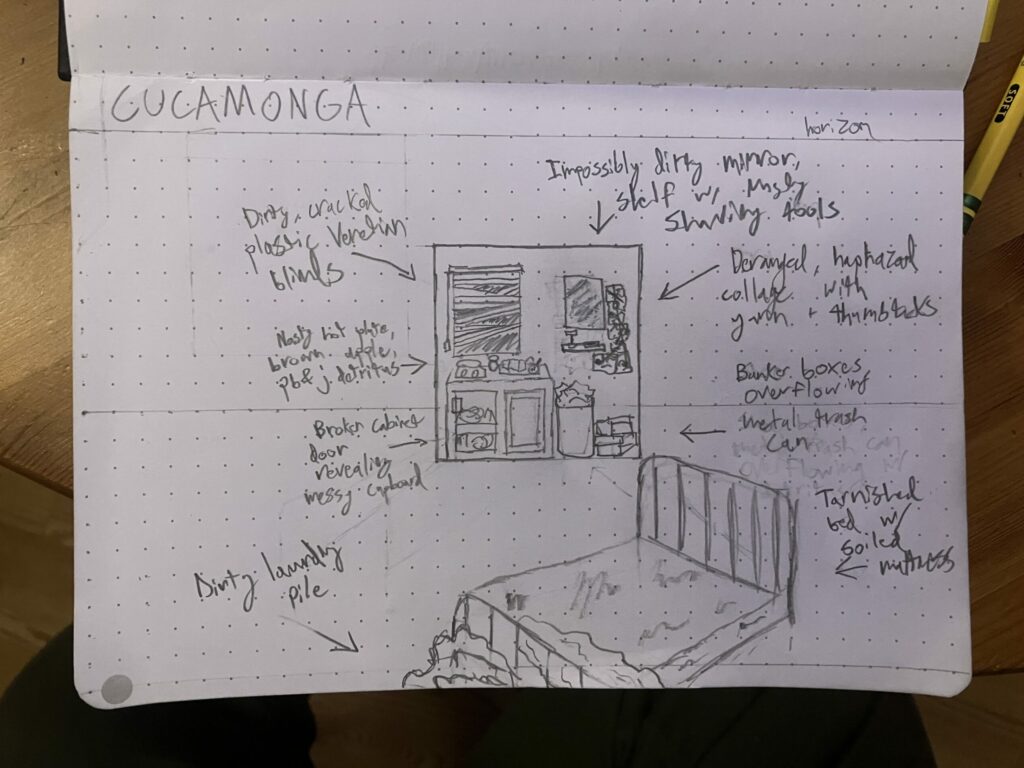 CUCAMONGA
horizon
Impossibly dirty mirror,
shelf w/ 
shaving tools
Dirty, cracked
plastic Venetian
blinds
Deranged, haphazard
collage with
yarn + thumbtacks
Nasty hot plate,
brown apple,
pb&j detritus
Banker boxes
overflowing
metal trash
can
metal trash can
overflowing w/
Broken cabinet
door
revealing
messy cupboard
Tarnished
bed w/
soiled
mattress
Dirty laundry
pile
SOFT